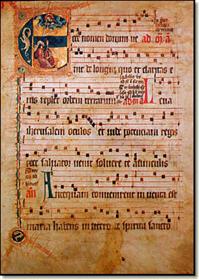 cce nomen domini ue
nit de longinquo et claritas e
ius replet orbem terrarum Leua
iherusalem oculos et uide potentiam regis
ecce saluator uenit soluere te a uinculis
Antequam conuenirent inuenta est
maria habens in utero de spiritu sancto